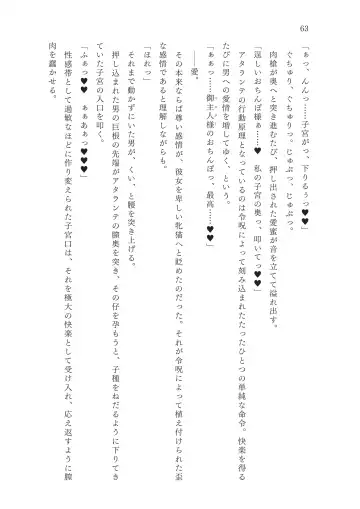 63
「ぁっ、んんっ……子宮がっ、下りるぅっ♥♥」
ぐちゅり、ぐちゅりっ。じゅぷっ、じゅぷっ。
肉槍が奥へと突き進むたび、押し出された愛蜜が音を立てて溢れ出す。
「逞しいおちんぽ様ぁ……♥　私の子宮の奥っ、叩いてっ♥」
アタランテの行動原理となっているのは令呪によって刻み込まれたたったひとつの単純な命令。快楽を得る
たびに男への愛情を増してゆく、という。
「ぁぁっ……御主人様のおちんぽっ、最高……っ♥♥」
――愛。
その本来ならば尊い感情が、彼女を卑しい牝猫へと貶めたのだった。それが令呪によって植え付けられた歪
な感情であると理解しながらも。
「ほれっ」
それまで動かずにいた男が、くい、と腰を突き上げる。
押し込まれた男の巨根の先端がアタランテの膣奥を突き、その仔を孕もうと、子種をねだるように下りてき
ていた子宮の入口を叩く。
「ふぁっっ♥　ぁぁあぁっっ♥♥」
性感帯として過敏なほどに作り変えられた子宮口は、それを極大の快楽として受け入れ、応え返すように膣
肉を蠢かせる。